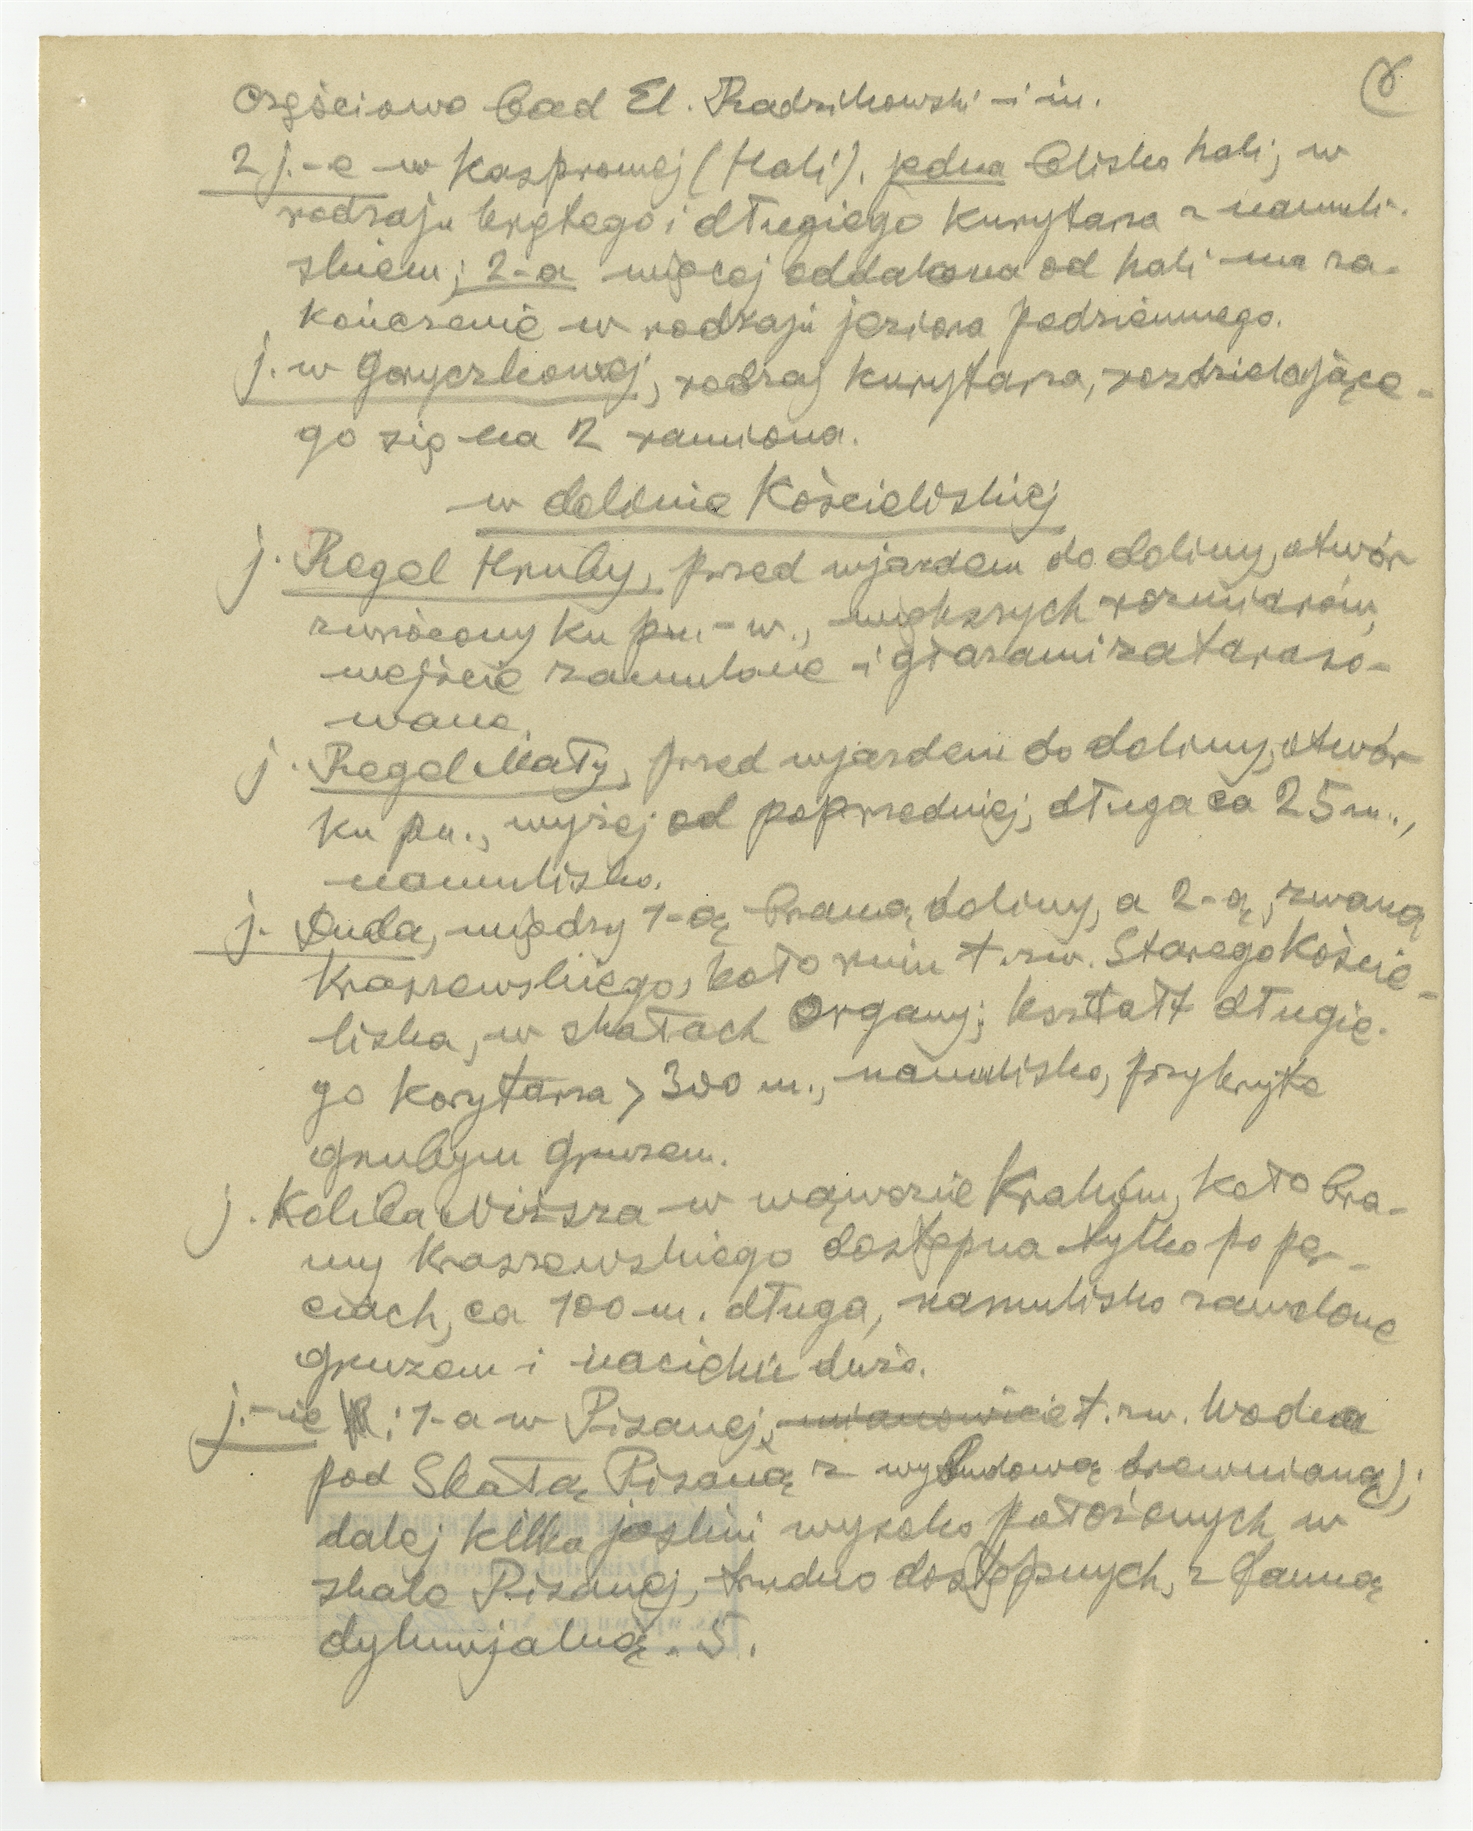 8
częściowo bad El. Radzikowski i in.
2 j.-e w Kasprowej (Hali), jedna blisko hali, w
rodzaju krętego i długiego kurytarza z namuli-
skiem; 2-a więcej oddalona od hali ma za-
kończenie w rodzaju jeziora podziemnego.
j. w Goryczkowej, rodzaj kurytarza, rozdzielające-
go się na 2 ramiona.
w dolinie Kościeliskiej
j. Regel Hruby, przed wjazdem do doliny, otwór
zwrócony ku pn.-w., większych rozmiarów,
wejście zamulone i głazami zataraso-
wane.
j. Regel Mały, przed wjazdem do doliny, otwór
ku pn., wyżej od poprzedniej, długa ca 25 m.,
namulisko.
j. Duda, między 1-ą bramą doliny, a 2-ą, zwaną
Kraszewskiego, koło ruin t.zw. Starego Koście-
liska, w skałach Organy; kształt długie-
go korytarza > 300 m., namulisko, przykryte
grubym gruzem.
j. Koliba Niższa w wąwozie Kraków, koło Bra-
my Kraszewskiego dostępna tylko po pę-
ciach, ca 100 m. długa, namulisko zawalone
gruzem i nacieków dużo.
j.-ie : 1-a w Pisanej, mianowicie t.zw. Wodna
pod Skałą Pisaną z wybudową drewnianą);
dalej kilka jaskiń wysoko położonych w
skale Pisanej, trudno dostępnych, z fauną
dyluwjalną. 5.